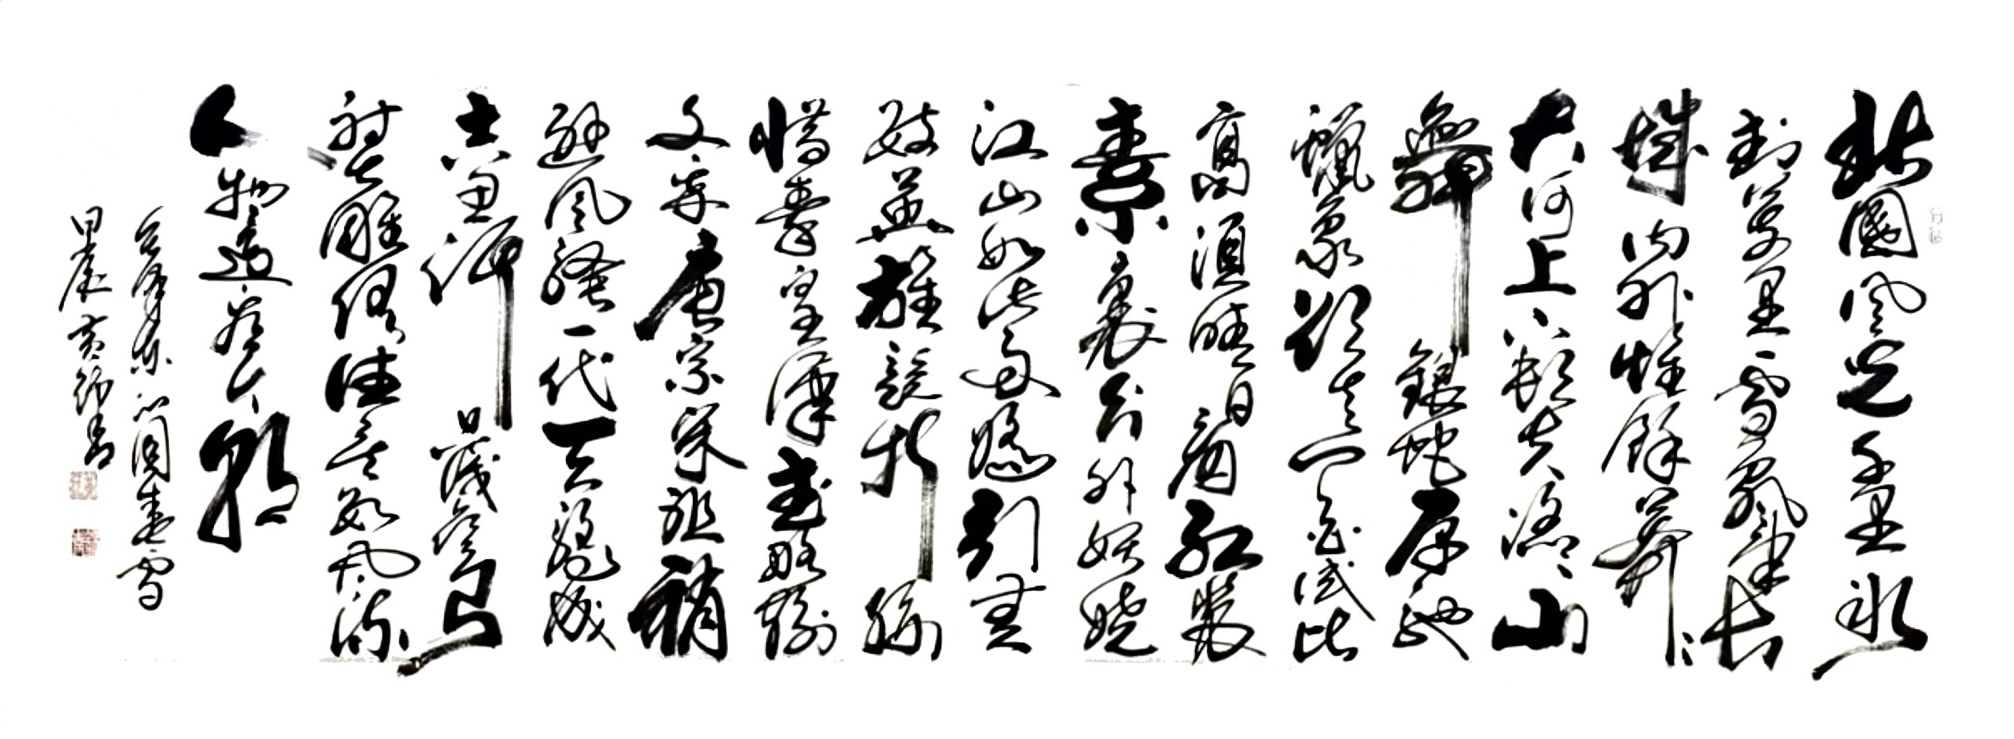 北國風光千里冰
封萬里雪飄望長
城內外惟餘莽莽
大河上下頓失滔滔山
舞銀蛇原馳
蠟象欲與天公試比
高須晴日看紅裝
素裹分外妖嬈
江山如此多嬌引無
數英雄競折腰
惜秦皇漢武略輸
文采唐宗宋祖稍
遜風騷一代天驕成
吉思汗只識彎弓
射大雕俱往矣數風流
人物還看今朝
毛澤東沁園春雪